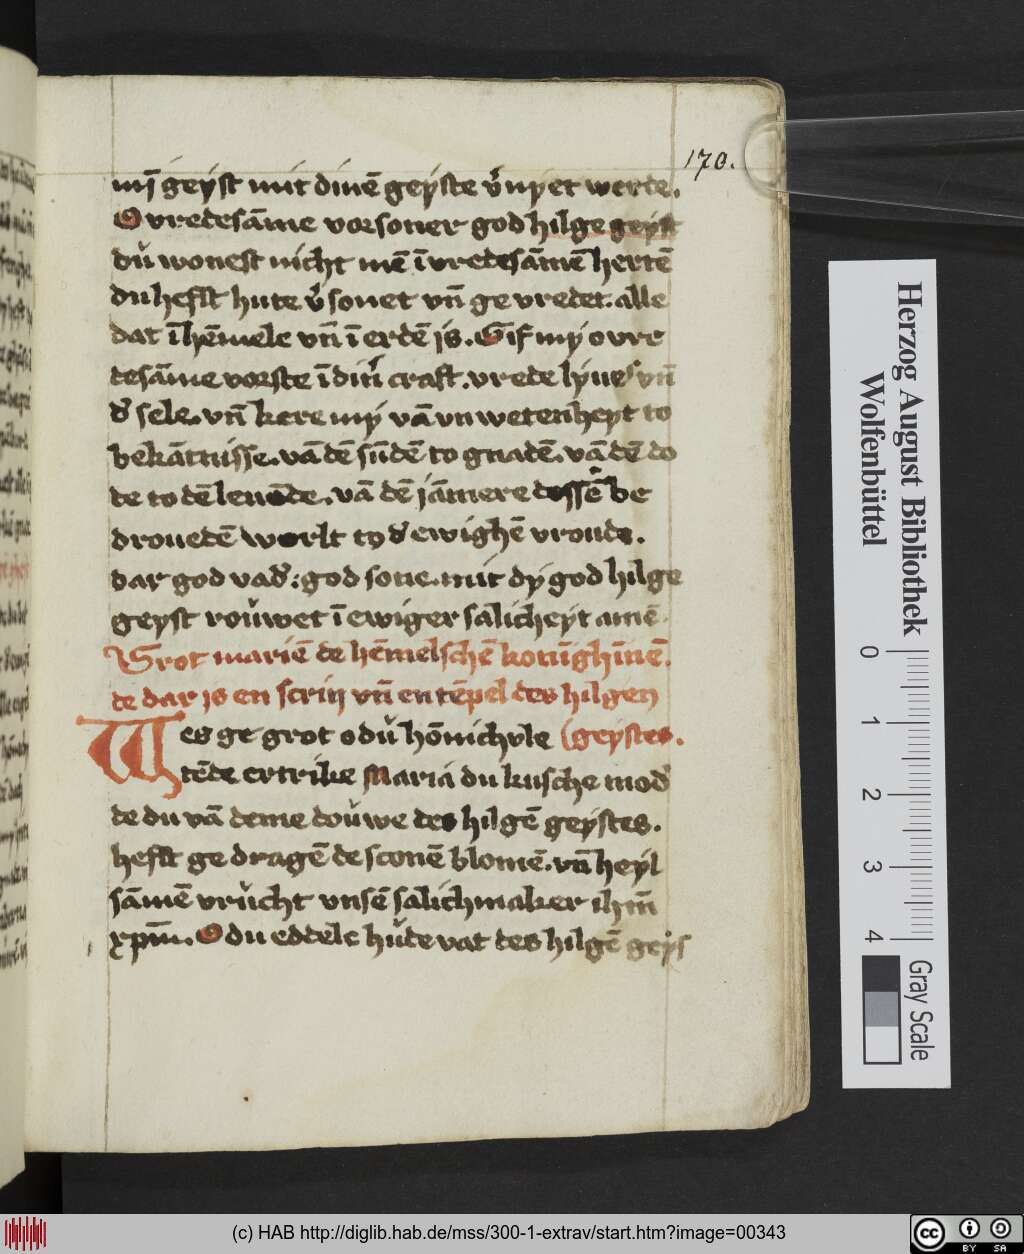 170.
mī geyst mit dinē geyste v̓nyet werde.
O vredesāme vorsoner god hilge geyst
du̇ wonest nicht mē ī vredesāmē hertē
du hefst hute v̓sonet vn̄ ge vredet. alle
dat ī hēmele vn̄ ī erdē is. Gif my o vre
desāme vorste ī din̓ craft. vrede lyues vn̄
d̓ sele. vn̄ kere my vā vn wetenheyt to
bekātnisse. vā dē sūdē to gnadē. vā dē do
de to dē leuēde. vā dē jāmere dessē be
drouedē werlt to d̓ ewighē vroude.
dar god vad̓: god sone. mit dy god hilge
geyst rou̇wet ī ewiger salicheyt amē.
Grot mariē de hēmelschē konīghīnē.
de dar is en scrin vn̄ en tēpel des hilgen
Wes ge grot o du̇ hōnichvle (geystes.
tēde ertrike Maria du kusche mod̓
de du vā deme dou̇we des hilgē geystes.
hefst ge dragē de sconē blomē. vn̄ heyl
sāmē vru̇cht vnsē salichmaker ihm̄
xpm̄. O du eddele hu̇de vat des hilgē geys
Herzog August Bibliothek
Wolfenbüttel
0 1 2 3 4
Gray Scale
(c) HAB http://diglib.hab.de/mss/300-1-extrav/start.htm?image=00343
cc BY SA